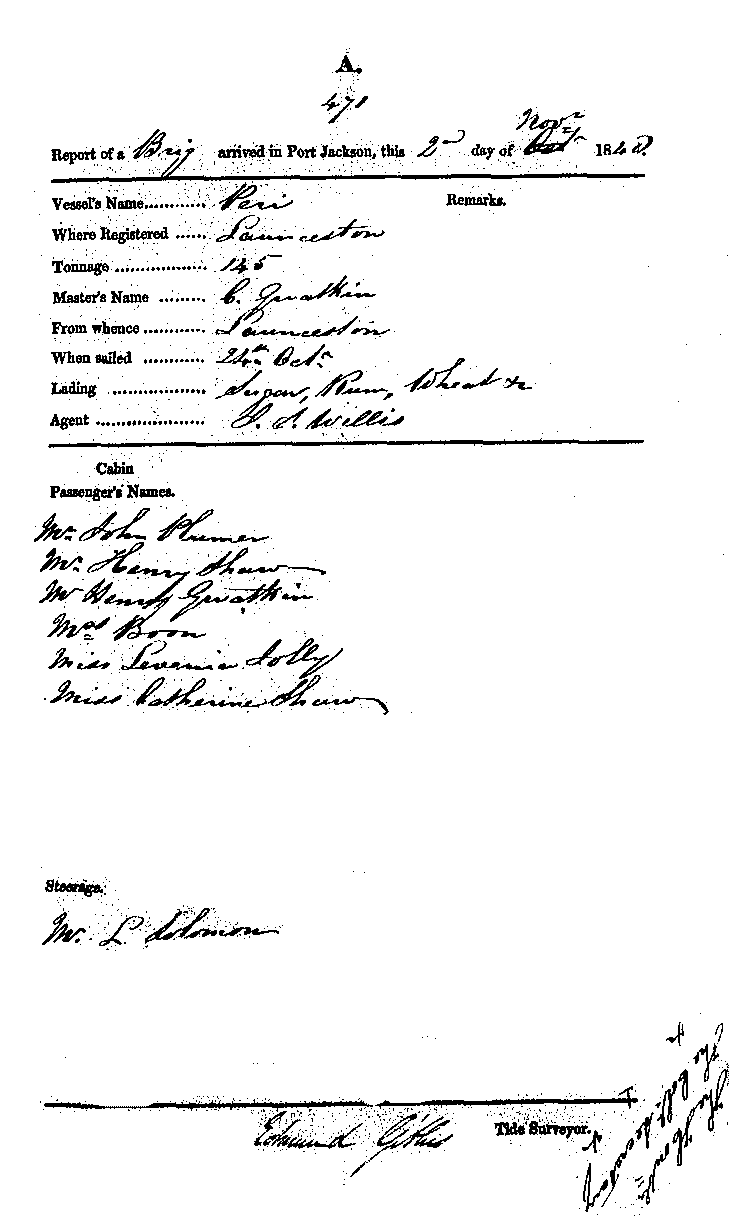 A.
471
Report of a Brig arrived in Port Jackson, this 2nd day of Octr Novr 184
Vessel's Name............ Peri
Remarks.
Where Registered ...... Launceston
Tonnage .................. 145
Master's Name ......... C. Gwatkin
From whence ............ Launceston
When sailed ............ 24th Octr
Lading .................. Sugar, Rum, Wheat &c
Agent ..................... Willis
Cabin
Passenger's Names.
Mr. John Plumer
Mr. Henry Shaw
Mr Henry Gwatkin
Mrs Boon
Miss Leverina Jolly
Miss Catherine Shaw
Steerage.
Mr. L Solomon
Edmund
Tide Surveyor.
The Honble
The Col. Secretary